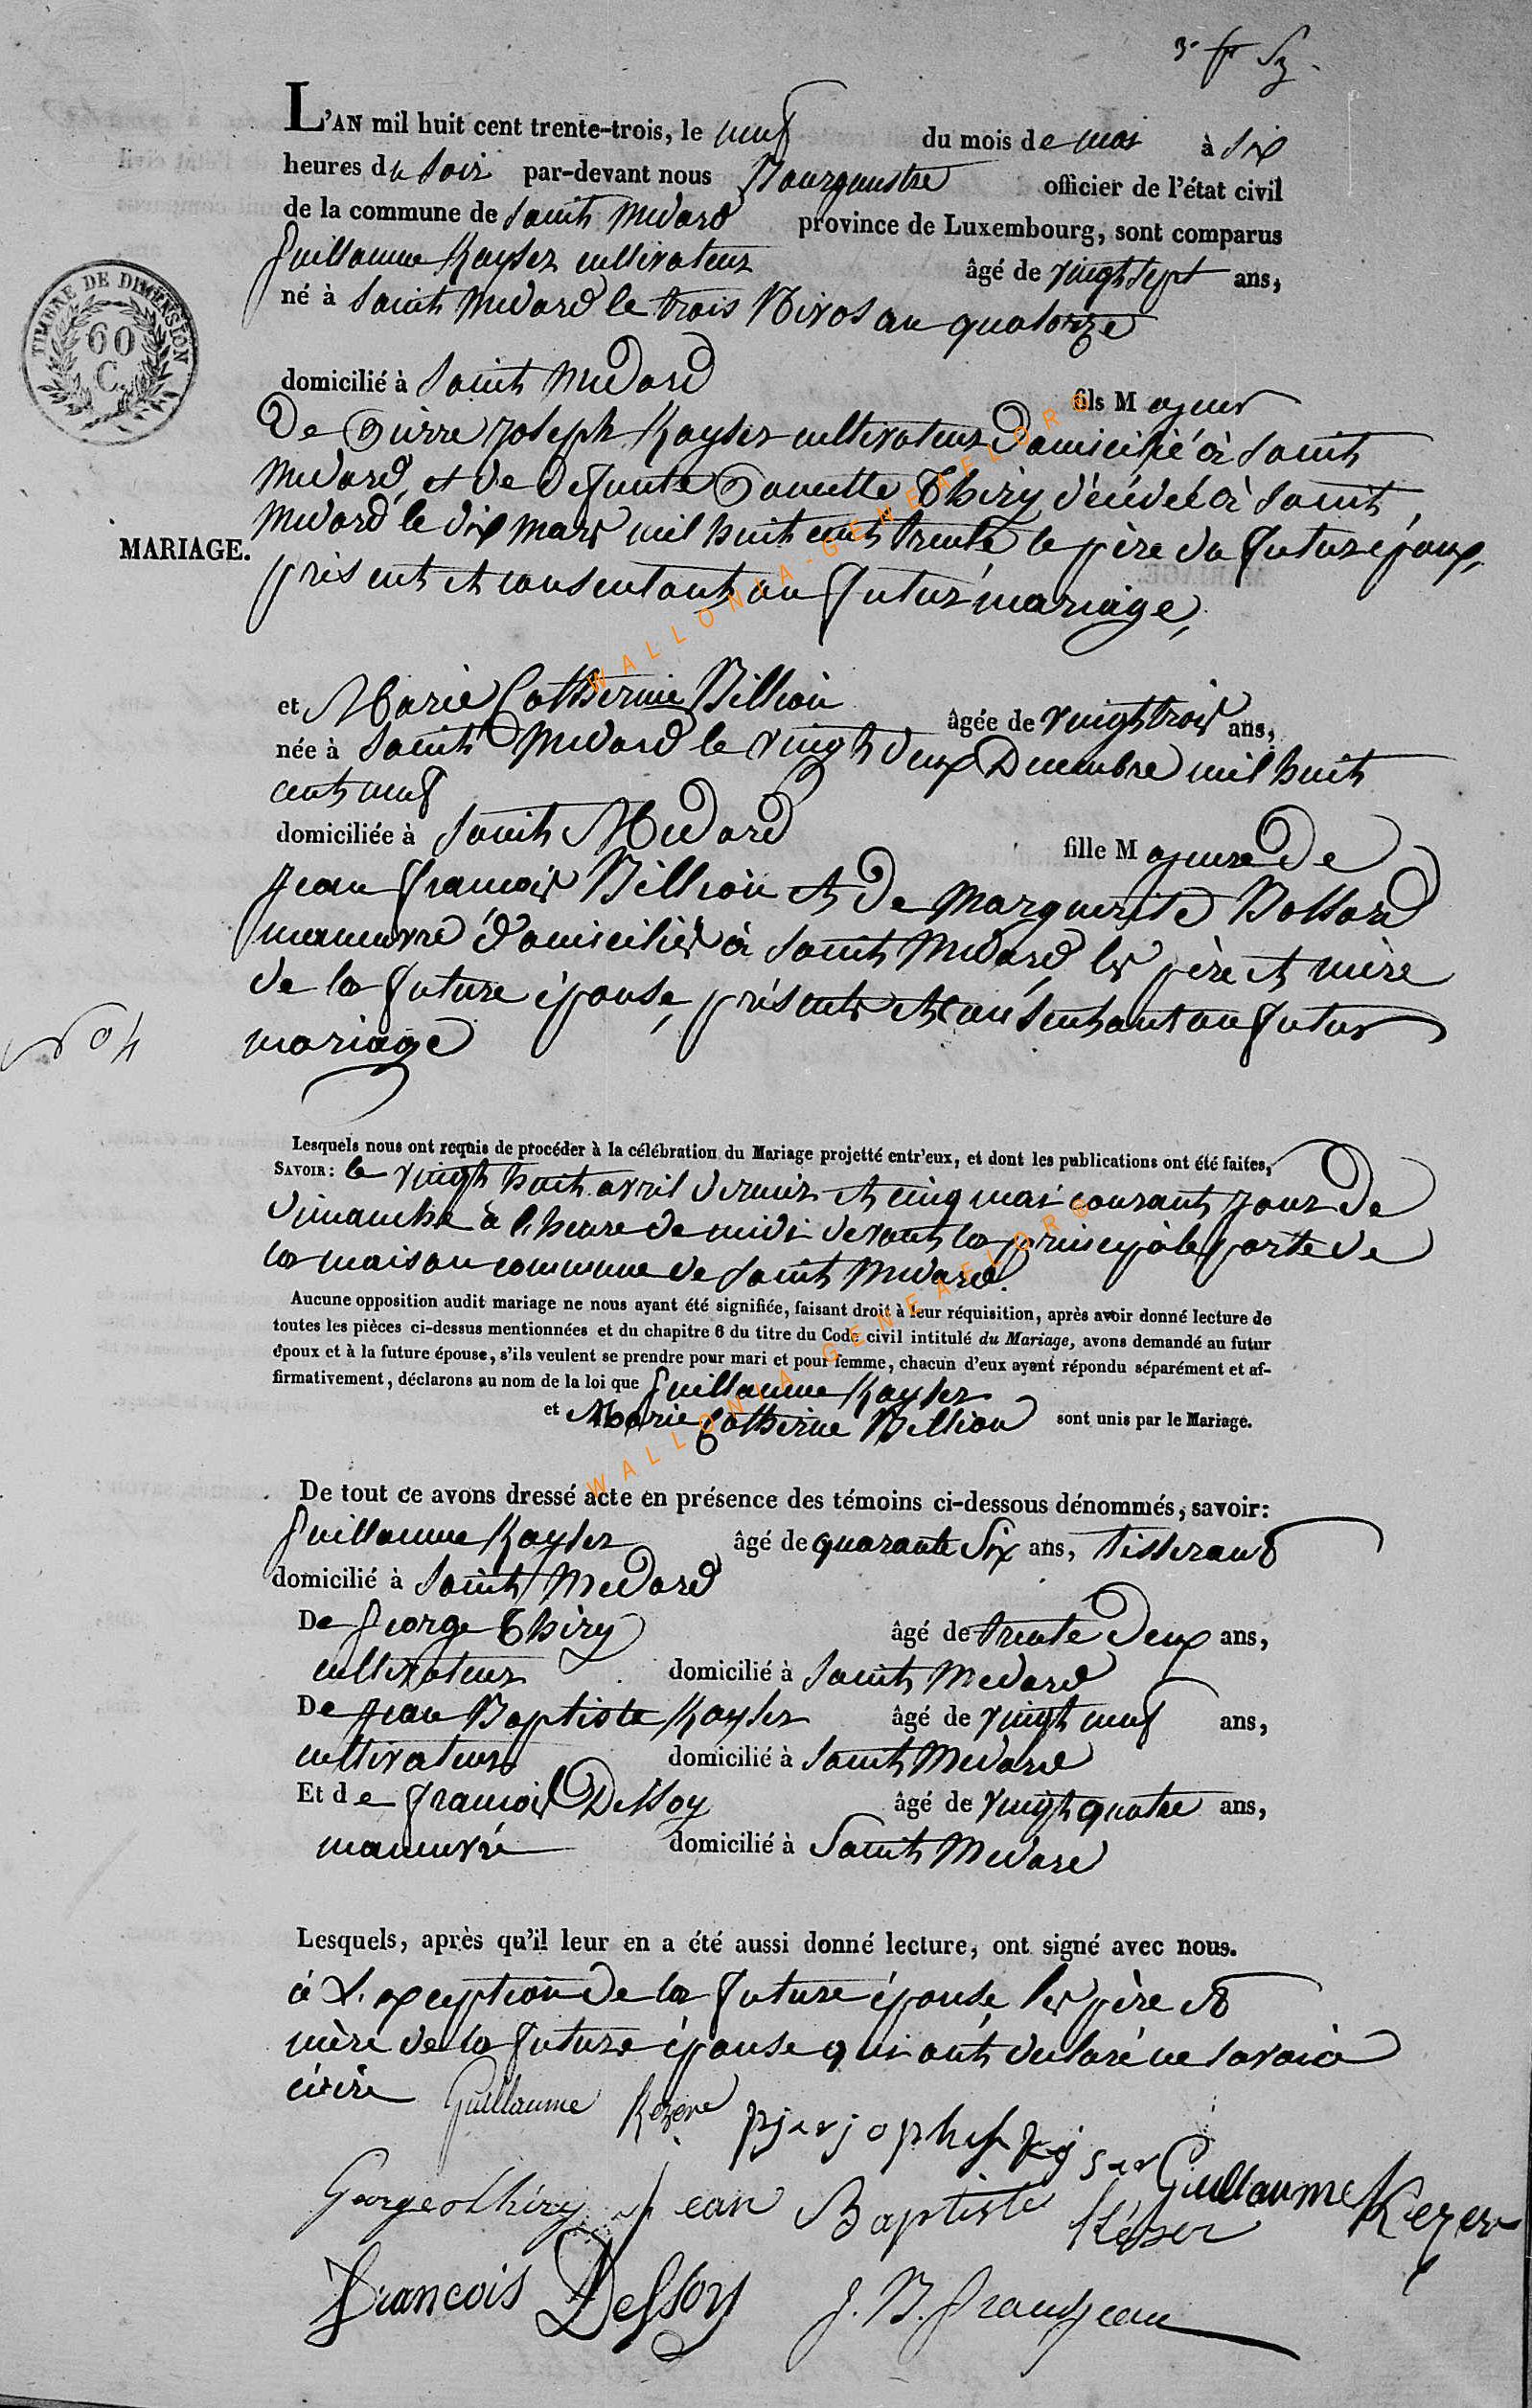 3 fr
L'AN mil huit cent trente-trois, le neuf du mois de mai à six
heures du soir par-devant nous Bourguestre officier de l'état civil
de la commune de Saint Medard province de Luxembourg, sont comparus
Guillaume Kayser cultivateur âgé de vingt sept ans,
né à Saint Medard le trois Nivos an quatorze
domicilié à Saint Medard fils Majeur
De Pierre Joseph Kayser cultivateur domicilié à Saint
Medard, et de defunte Pauette Thiry décédée à Saint
Medard le dix mars mil huit cent trente, le père du futur époux,
présent et consentant au futur mariage,
MARIAGE.
et Marie Catherine Billion âgée de vingt trois ans,
née à Saint Medard le vingt deux Decembre mil huit
cent neuf
domiciliée à Saint Medard fille Majeure de
Jean francois Billion et de Marguerite Bossard
maneuvre domiciliés à Saint Medard, les père et mère
de la future épouse, présents et consentant au futur
mariage
No 4
Lesquels nous ont requis de procéder à la célébration du Mariage projetté entr'eux, et dont les publications ont été faites,
SAVOIR : le vingt huit avril dernier et cinq mai courant jour de
dimanche à l'heure de midi devant la principale porte de
la maison commune de Saint Medard.
Aucune opposition audit mariage ne nous ayant été signifiée, faisant droit à leur réquisition, après avoir donné lecture de
toutes les pièces ci-dessus mentionnées et du chapitre 6 du titre du Code civil intitulé du Mariage, avons demandé au futur
époux et à la future épouse, s'ils veulent se prendre pour mari et pour femme, chacun d'eux ayant répondu séparément et af-
firmativement, déclarons au nom de la loi que Guillaume Kayser
et Marie Catherine Billion sont unis par le Mariage.
De tout ce avons dressé acte en présence des témoins ci-dessous dénommés, savoir:
Guillaume Kayser âgé de quarante Six ans, tisserand
domicilié à Saint Medard
De George Thiry âgé de trente Deux ans,
cultivateur domicilié à Saint Medard
De Jean Baptiste Kayser âgé de vingt neuf ans,
cultivateur domicilié à Saint Medard
Et de francois Dessoy âgé de vingt quatre ans,
maneuvre domicilié à Saint Medard
Lesquels, après qu'il leur en a été aussi donné lecture, ont signé avec nous.
à L'exception de la future épouse, les père et
mère de la future épouse qui ont declaré ne savoir
écrire Guillaume Kezere pjerjopheh Kejser
Guillaume Kezer
George thiry Jean Baptiste Késer
francois Dessoy J. B. Grandjean
TIMBRE DE DIMENSION
60
C.
WALLONIA-GENEAFLORE
WALLONIA-GENEAFLORE